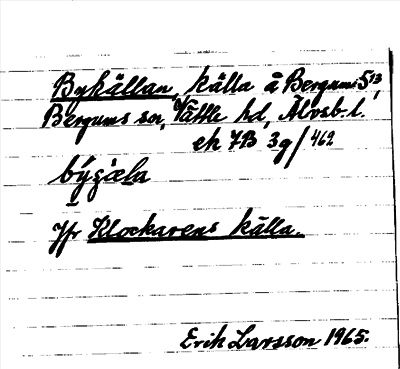 Bykällan, källa å Bergum 5¹³,
Bergums sn, Vättle hd, Älvsb. l.
ek 7B 3g/462
býgàla
Jfr Klockarens källa.
Erik Larsson 1965.